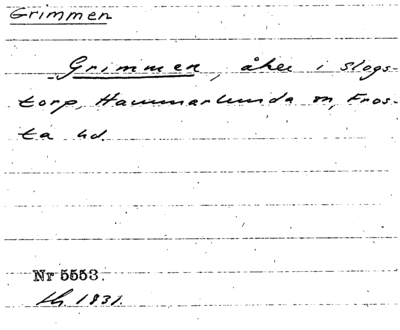 Grimmen
Grimmen, åker i Slogs-
torp, Hammarlunda sn, Fros-
ta hd.
Nr 5553.
1831.